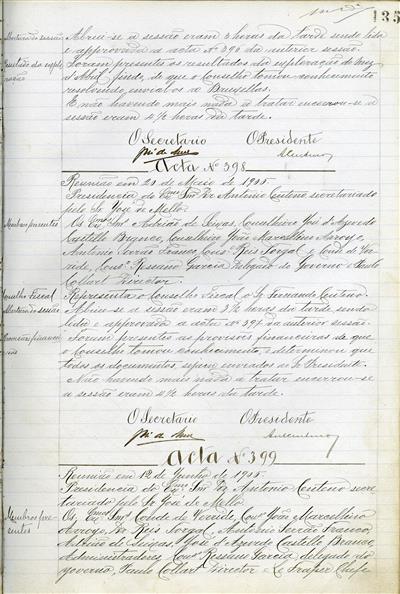 135
Abertura da sessão
Abriu-se a sessão eram 3 horas da tarde sendo lida
e approvada a acta Nº 396 da anterior sessão.
Resultado da explo-
ração
Foram presentes os resultados da exploração do mez
d'Abril findo, de que o Conselho tomou conhecimento
resolvendo envial-os a Bruxellas.
E não havendo mais nada a tratar encerrou-se a
sessão eram 4½ horas da tarde.
O Secretario O Presidente
Acta Nº 398
Reunião em 23 de Maio de 1905
Presidencia do Exmo Snr Dr Antonio Centeno secretariado
pelo Sr José de Mello.
Membros presentes
Os Exmos Snrs Adrião de Seixas, Conselheiro José d'Azevedo
Castello Branco, Conselheiro João Marcellino Arroyo,
Antonio Serrão Franco, Consº Reis Torgal e Conde de
Consº Rosiano Garcia Delegado do Governo e Paulo
Collart Director.
Conselho Fiscal
Representa o Conselho Fiscal o Sr Fernando Centeno.
Abertura da sessão
Abriu-se a sessão eram 3½ horas da tarde sendo
lida e approvada a acta Nº 397 da anterior sessão.
Previsões financei-
ras
Foram presentes as previsões financeiras de que
o Conselho tomou conhecimento e determinou que
todos os documentos, sejam enviados ao Sr Presidente.
Não havendo mais nada a tratar encerrou-se
a sessão eram 4½ horas da tarde.
O Secretario O Presidente
Acta Nº 399
Reunião em 12 de Junho de 1905
Presidencia do Exmo Snr Dr Antonio Centeno secre-
tariado pelo Sr José de Mello.
Membros pre-
sentes
Os Exmos Snrs Conde de Consº João Marcellino
Arroyo, Reis Torgal, Antonio Serrão Franco,
Adrião de Seixas, José d'Azevedo Castello Branco,
Administradores, Consº Rosiano Garcia delegado do
governo, Paulo Collart Director